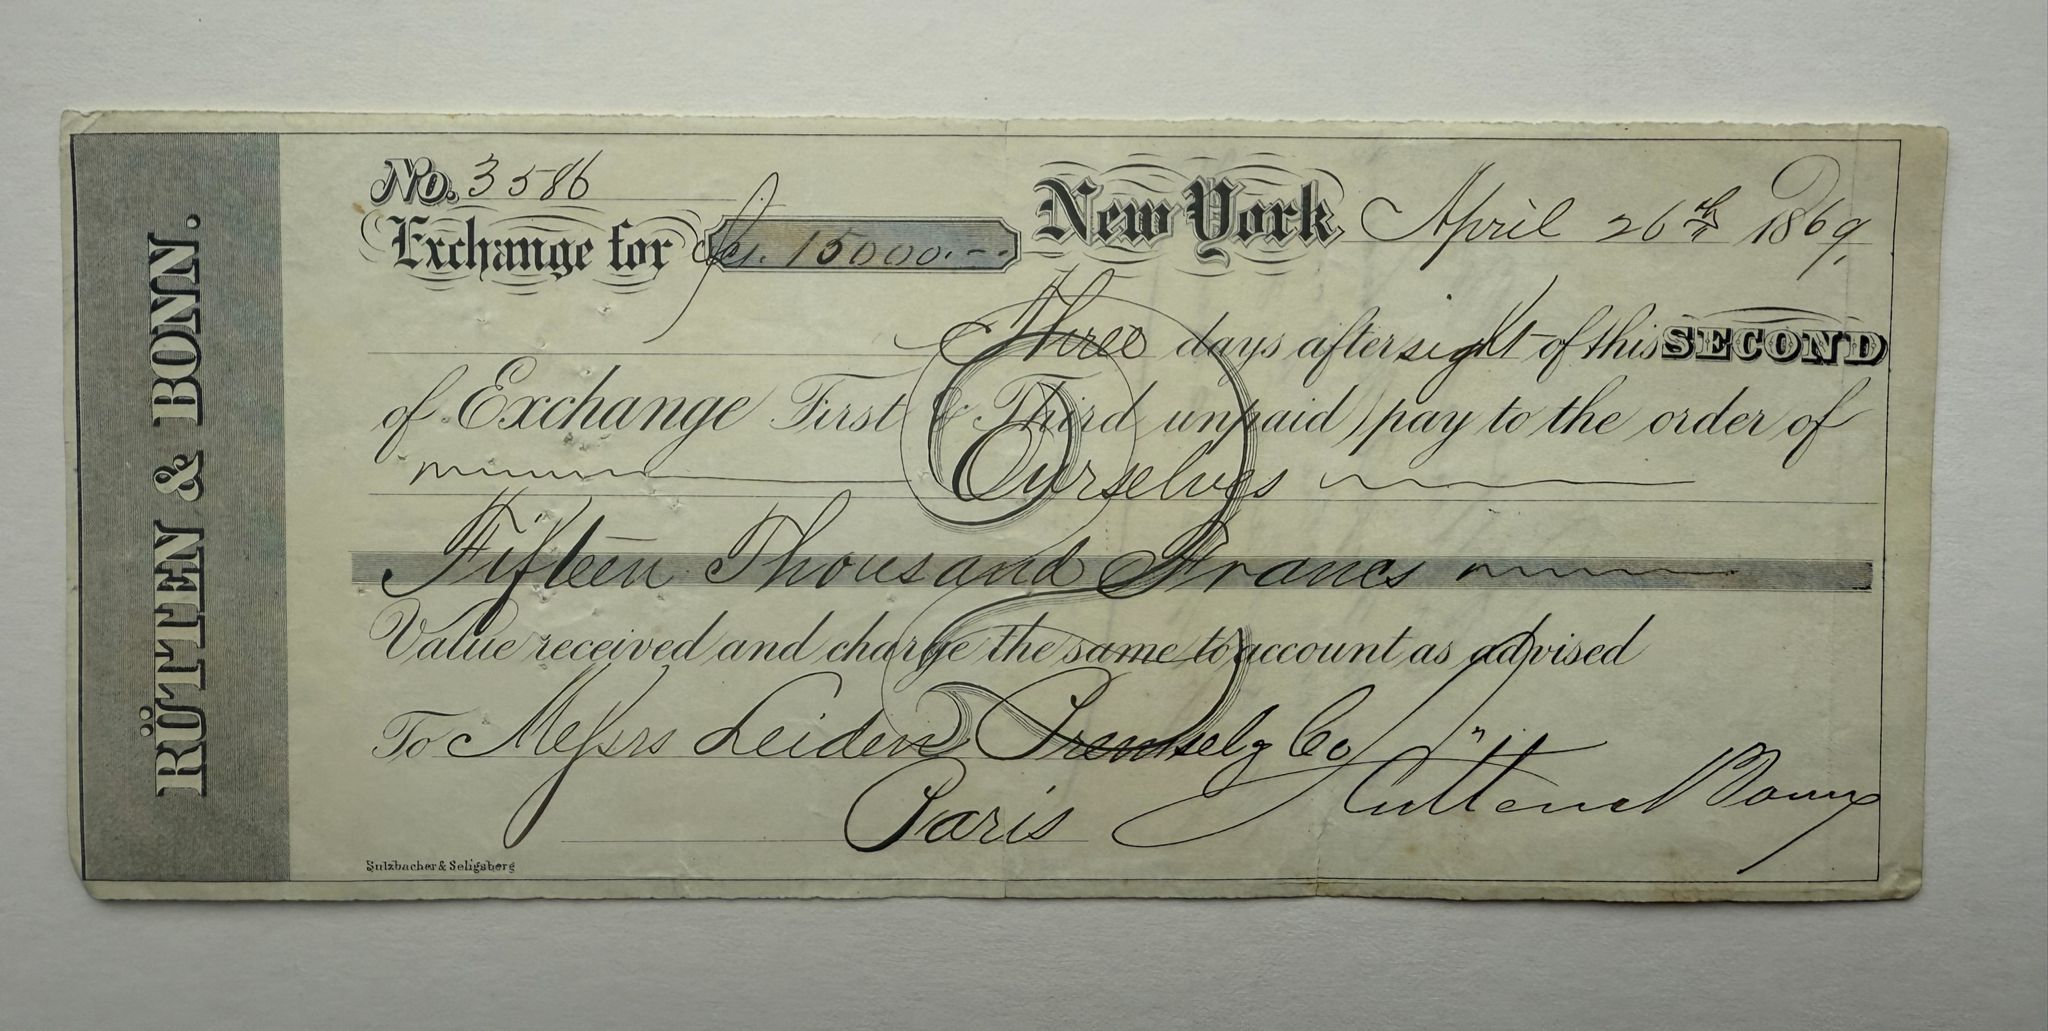 RÜTTEN & BONN.
No. 3586
Exchange for fcs. 15000.--.
New York April 26th 1869.
Three days after sight of this SECOND
of Exchange First & Third unpaid) pay to the order of
Ourselves
Fifteen Thousand Francs
Value received and charge the same to account as advised
To Messrs Leiden Premsel & Co
Paris
Rütten & Bonn
Sulzbacher & Seligsberg